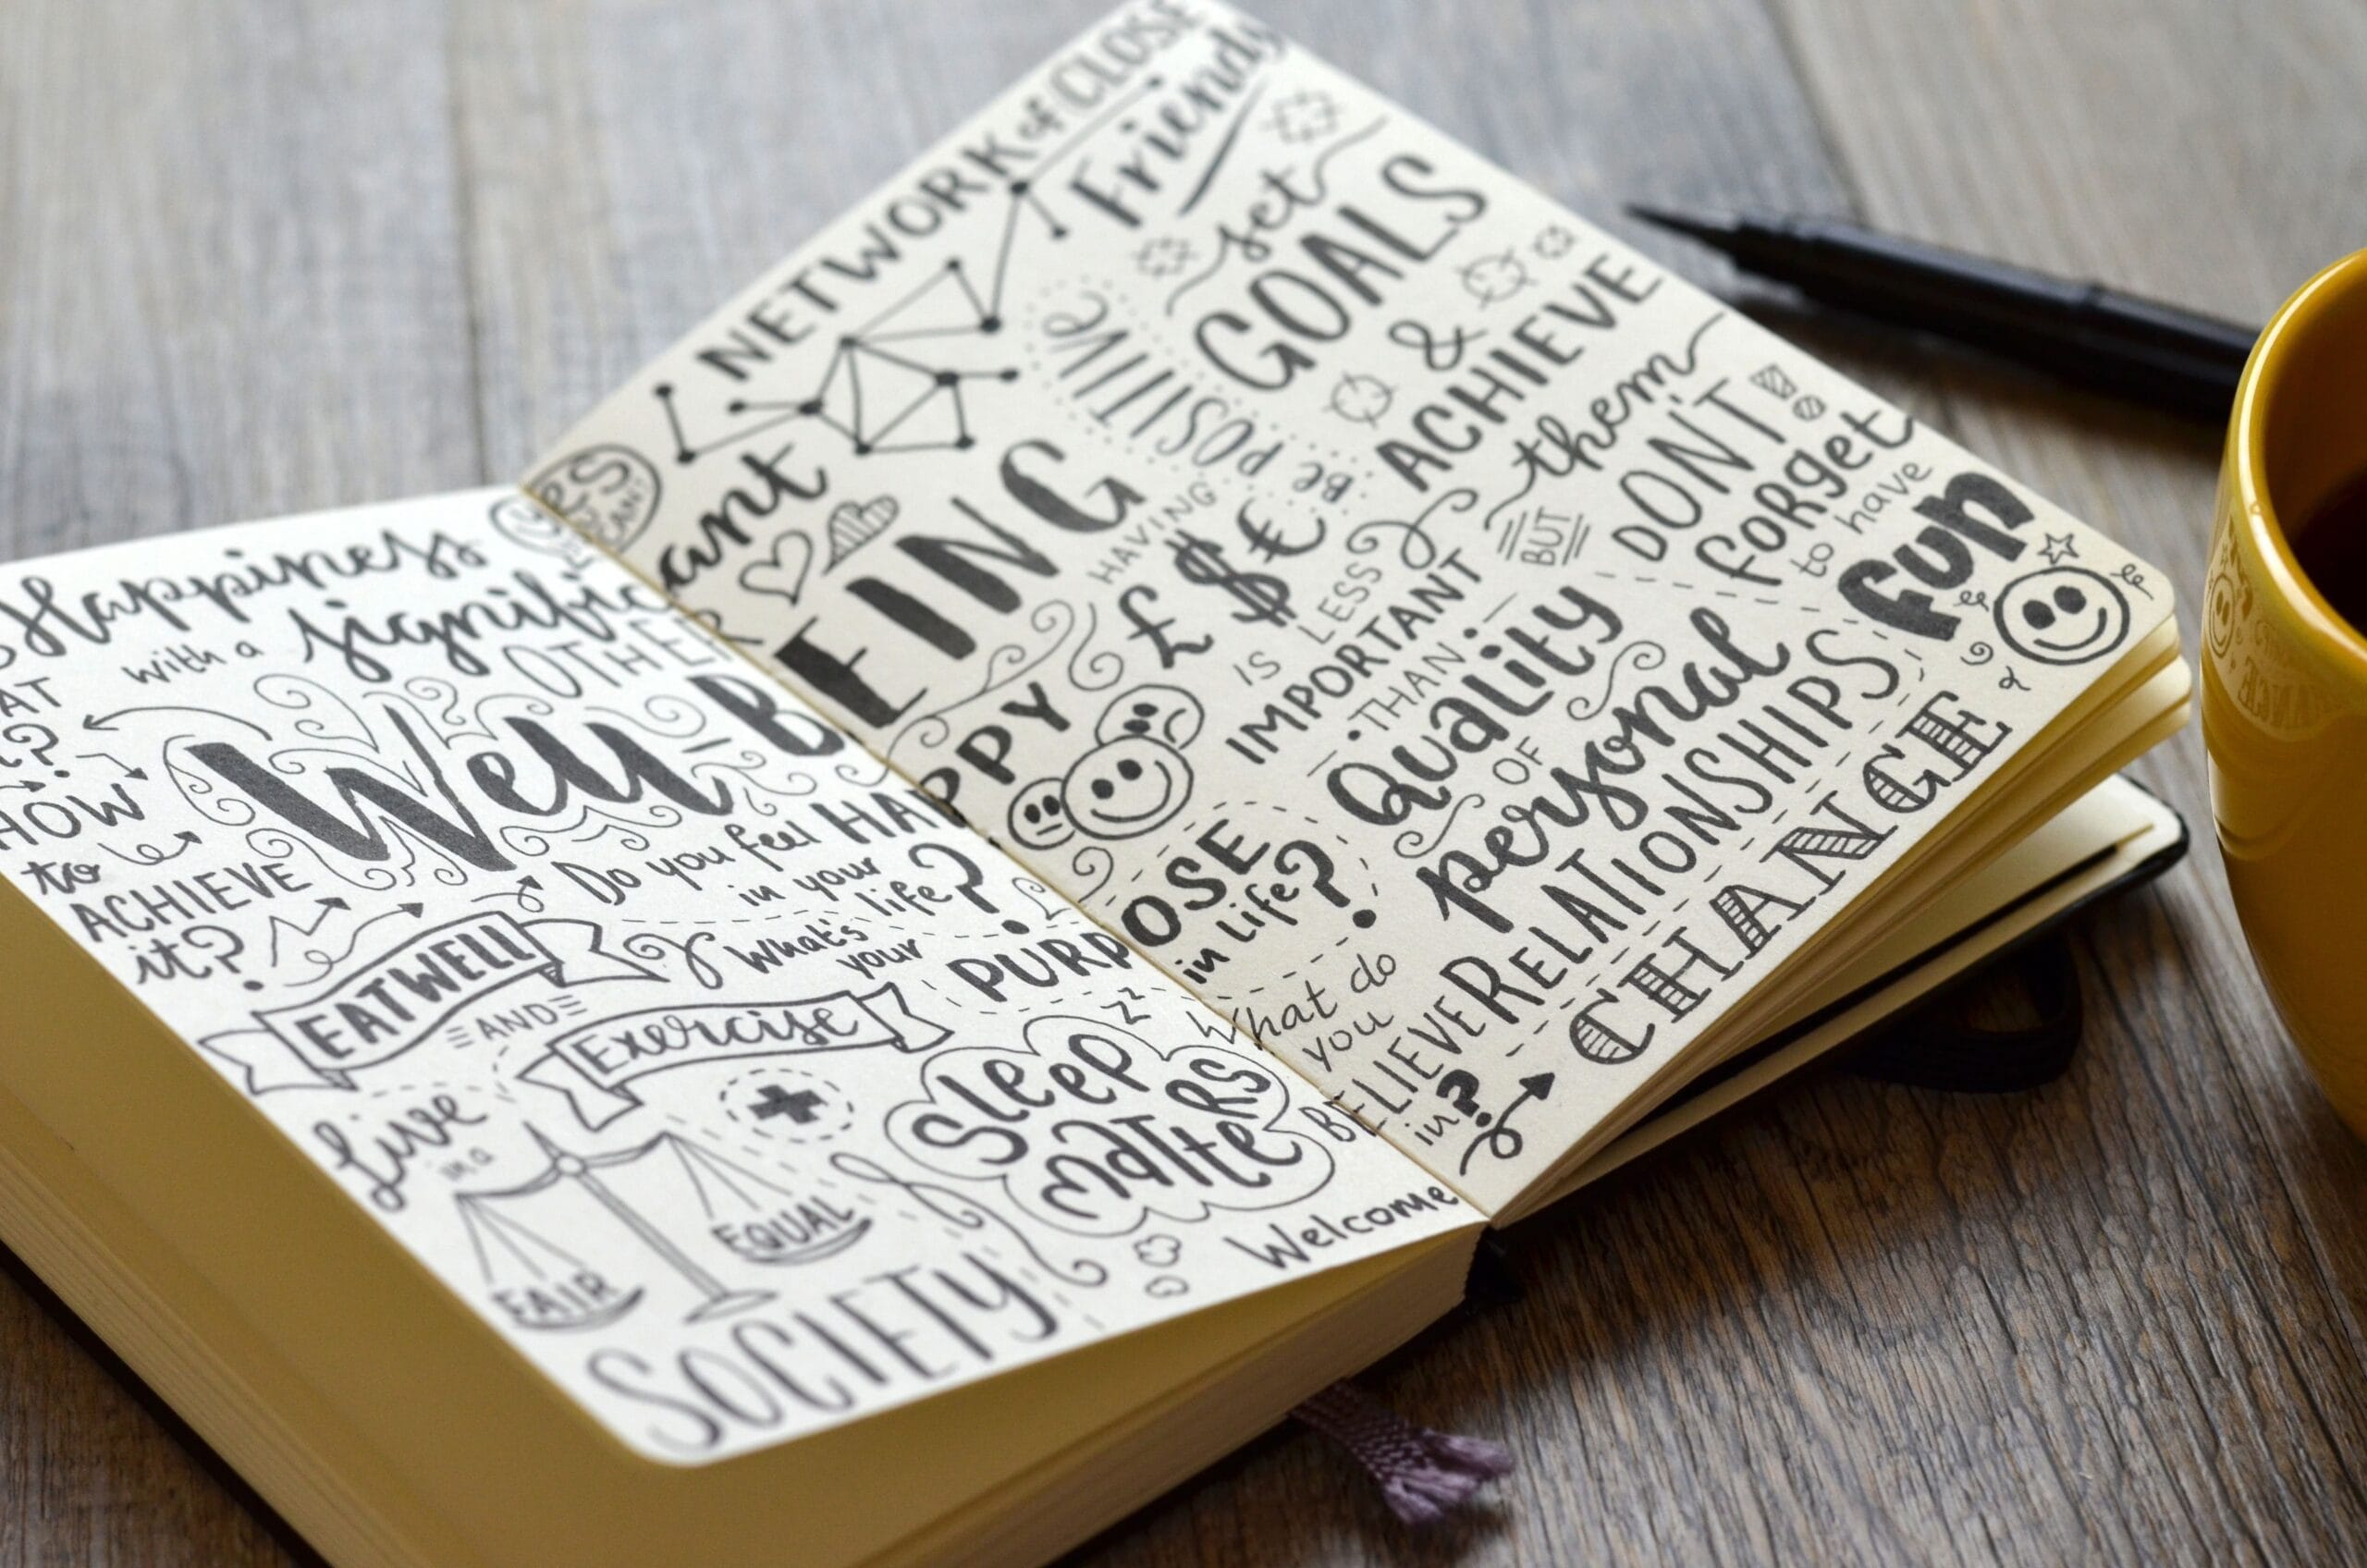 Happiness
with a significant
OTHER
YES
YOU
CAN!
HOW
to
ACHIEVE
it?
Well-BEING
Do you feel HAPPY
in your
life?
EAT WELL
AND
Exercise
What's
your
PURPOSE
in life?
Live
in a
FAIR
EQUAL
SOCIETY
zz
Sleep
MATTERS
Welcome
NETWORK of CLOSE
Friends
set
GOALS
&
ACHIEVE
them
BE
POSITIVE
BUT
DON'T!!
forget
to have
FUN
HAVING
£ $ €
IS LESS
IMPORTANT
THAN
Quality
OF
personal
RELATIONSHIPS
What do
you
BELIEVE
in?
CHANGE